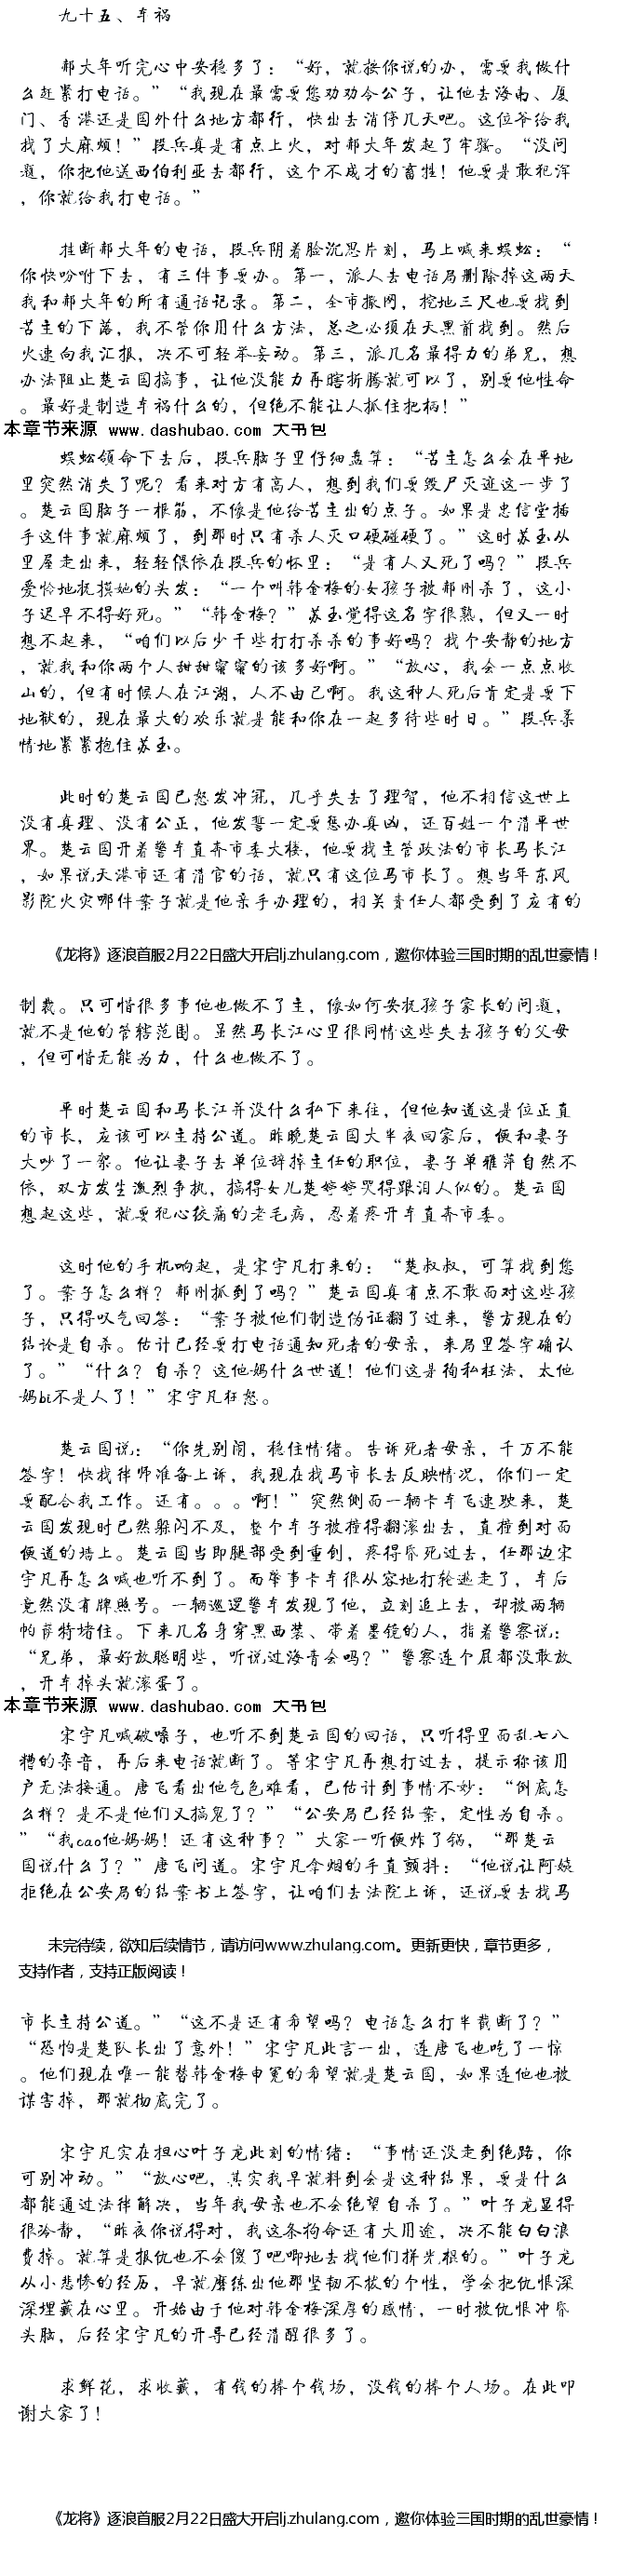 九十五、车祸
郝大年听完心中安稳多了：“好，就按你说的办，需要我做什
么赶紧打电话。”“我现在最需要您劝劝令公子，让他去海南、厦
门、香港还是国外什么地方都行，快出去消停几天吧。这位爷给我
找了大麻烦！”段兵真是有点上火，对郝大年发起了牢骚。“没问
题，你把他送西伯利亚去都行，这个不成才的畜牲！他要是敢犯浑
，你就给我打电话。”
挂断郝大年的电话，段兵阴着脸沉思片刻，马上喊来蜈蚣：“
你快吩咐下去，有三件事要办。第一，派人去电话局删除掉这两天
我和郝大年的所有通话记录。第二，全市撒网，挖地三尺也要找到
苦主的下落，我不管你用什么方法，总之必须在天黑前找到。然后
火速向我汇报，决不可轻举妄动。第三，派几名最得力的弟兄，想
办法阻止楚云国搞事，让他没能力再瞎折腾就可以了，别要他性命
。最好是制造车祸什么的，但绝不能让人抓住把柄！”
本章节来源 www.dashubao.com 大书包
蜈蚣领命下去后，段兵脑子里仔细盘算：“苦主怎么会在平地
里突然消失了呢？看来对方有高人，想到我们要毁尸灭迹这一步了
。楚云国脑子一根筋，不像是他给苦主出的点子。如果是忠信堂插
手这件事就麻烦了，到那时只有杀人灭口硬碰硬了。”这时苏玉从
里屋走出来，轻轻偎依在段兵的怀里：“是有人又死了吗？”段兵
爱怜地抚摸她的头发：“一个叫韩金梅的女孩子被郝刚杀了，这小
子迟早不得好死。”“韩金梅？”苏玉觉得这名字很熟，但又一时
想不起来，“咱们以后少干些打打杀杀的事好吗？找个安静的地方
，就我和你两个人甜甜蜜蜜的该多好啊。”“放心，我会一点点收
山的，但有时候人在江湖，人不由己啊。我这种人死后肯定是要下
地狱的，现在最大的欢乐就是能和你在一起多待些时日。”段兵柔
情地紧紧抱住苏玉。
此时的楚云国已怒发冲冠，几乎失去了理智，他不相信这世上
没有真理、没有公正，他发誓一定要惩办真凶，还百姓一个清平世
界。楚云国开着警车直奔市委大楼，他要找主管政法的市长马长江
，如果说天港市还有清官的话，就只有这位马市长了。想当年东风
影院火灾哪件案子就是他亲手办理的，相关责任人都受到了应有的
《龙将》逐浪首服2月22日盛大开启lj.zhulang.com，邀你体验三国时期的乱世豪情！
制裁。只可惜很多事他也做不了主，像如何安抚孩子家长的问题，
就不是他的管辖范围。虽然马长江心里很同情这些失去孩子的父母
，但可惜无能为力，什么也做不了。
平时楚云国和马长江并没什么私下来往，但他知道这是位正直
的市长，应该可以主持公道。昨晚楚云国大半夜回家后，便和妻子
大吵了一架。他让妻子去单位辞掉主任的职位，妻子单雅萍自然不
依，双方发生激烈争执，搞得女儿楚婷婷哭得跟泪人似的。楚云国
想起这些，就要犯心绞痛的老毛病，忍着疼开车直奔市委。
这时他的手机响起，是宋宇凡打来的：“楚叔叔，可算找到您
了。案子怎么样？郝刚抓到了吗？”楚云国真有点不敢面对这些孩
子，只得叹气回答：“案子被他们制造伪证翻了过来，警方现在的
结论是自杀。估计已经要打电话通知死者的母亲，来局里签字确认
了。”“什么？自杀？这他妈什么世道！他们这是徇私枉法，太他
妈bi不是人了！”宋宇凡狂怒。
楚云国说：“你先别闹，稳住情绪。告诉死者母亲，千万不能
签字！快找律师准备上诉，我现在找马市长去反映情况，你们一定
要配合我工作。还有。。。啊！”突然侧面一辆卡车飞速驶来，楚
云国发现时已然躲闪不及，整个车子被撞得翻滚出去，直撞到对面
便道的墙上。楚云国当即腿部受到重创，疼得昏死过去，任那边宋
宇凡再怎么喊也听不到了。而肇事卡车很从容地打轮逃走了，车后
竟然没有牌照号。一辆巡逻警车发现了他，立刻追上去，却被两辆
帕萨特堵住。下来几名身穿黑西装、带着墨镜的人，指着警察说：
“兄弟，最好放聪明些，听说过海青会吗？”警察连个屁都没敢放
，开车掉头就滚蛋了。
本章节来源 www.dashubao.com 大书包
宋宇凡喊破嗓子，也听不到楚云国的回话，只听得里面乱七八
糟的杂音，再后来电话就断了。等宋宇凡再想打过去，提示称该用
户无法接通。唐飞看出他气色难看，已估计到事情不妙：“倒底怎
么样？是不是他们又搞鬼了？”“公安局已经结案，定性为自杀。
”“我cao他妈妈！还有这种事？”大家一听便炸了锅，“那楚云
国说什么了？”唐飞问道。宋宇凡拿烟的手直颤抖：“他说让阿姨
拒绝在公安局的结案书上签字，让咱们去法院上诉，还说要去找马
未完待续，欲知后续情节，请访问www.zhulang.com。更新更快，章节更多，
支持作者，支持正版阅读！
市长主持公道。”“这不是还有希望吗？电话怎么打半截断了？”
“恐怕是楚队长出了意外！”宋宇凡此言一出，连唐飞也吃了一惊
。他们现在唯一能替韩金梅申冤的希望就是楚云国，如果连他也被
谋害掉，那就彻底完了。
宋宇凡实在担心叶子龙此刻的情绪：“事情还没走到绝路，你
可别冲动。”“放心吧，其实我早就料到会是这种结果，要是什么
都能通过法律解决，当年我母亲也不会绝望自杀了。”叶子龙显得
很冷静，“昨夜你说得对，我这条狗命还有大用途，决不能白白浪
费掉。就算是报仇也不会傻了吧唧地去找他们拼光棍的。”叶子龙
从小悲惨的经历，早就磨练出他那坚韧不拔的个性，学会把仇恨深
深埋藏在心里。开始由于他对韩金梅深厚的感情，一时被仇恨冲昏
头脑，后经宋宇凡的开导已经清醒很多了。
求鲜花，求收藏，有钱的捧个钱场，没钱的捧个人场。在此叩
谢大家了！
《龙将》逐浪首服2月22日盛大开启lj.zhulang.com，邀你体验三国时期的乱世豪情！